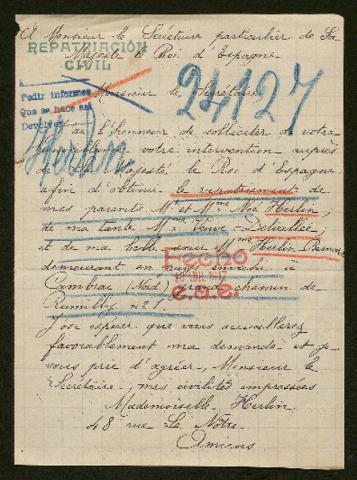 A Monsieur le Secrétaire particulier de Sa
Majesté le Roi d'Espagne
REPATRIACIÓN
CIVIL
24127
Monsieur le Secrétaire
Pedir informes
Que se hace así
J'ai l'honneur de solliciter de votre
votre intervention auprès
de Sa Majesté le Roi d'Espagne
afin d'obtenir le rapatriement de
mes parents Mr et Mme Noé Herlin,
de ma tante, Mme Veuve Delvallée,
et de ma belle-soeur Mme Herlin
demeurant en pays envahi à
Cambrai (Nord) grand chemin de
Rumilly no 1.
Hecho
J'ose espérer que vous accueillerez
favorablement ma demande et je
vous prie d'agréer, Monsieur le
Secrétaire, mes civilités empressées
Mademoiselle Herlin
48 rue Le Nôtre
Amiens